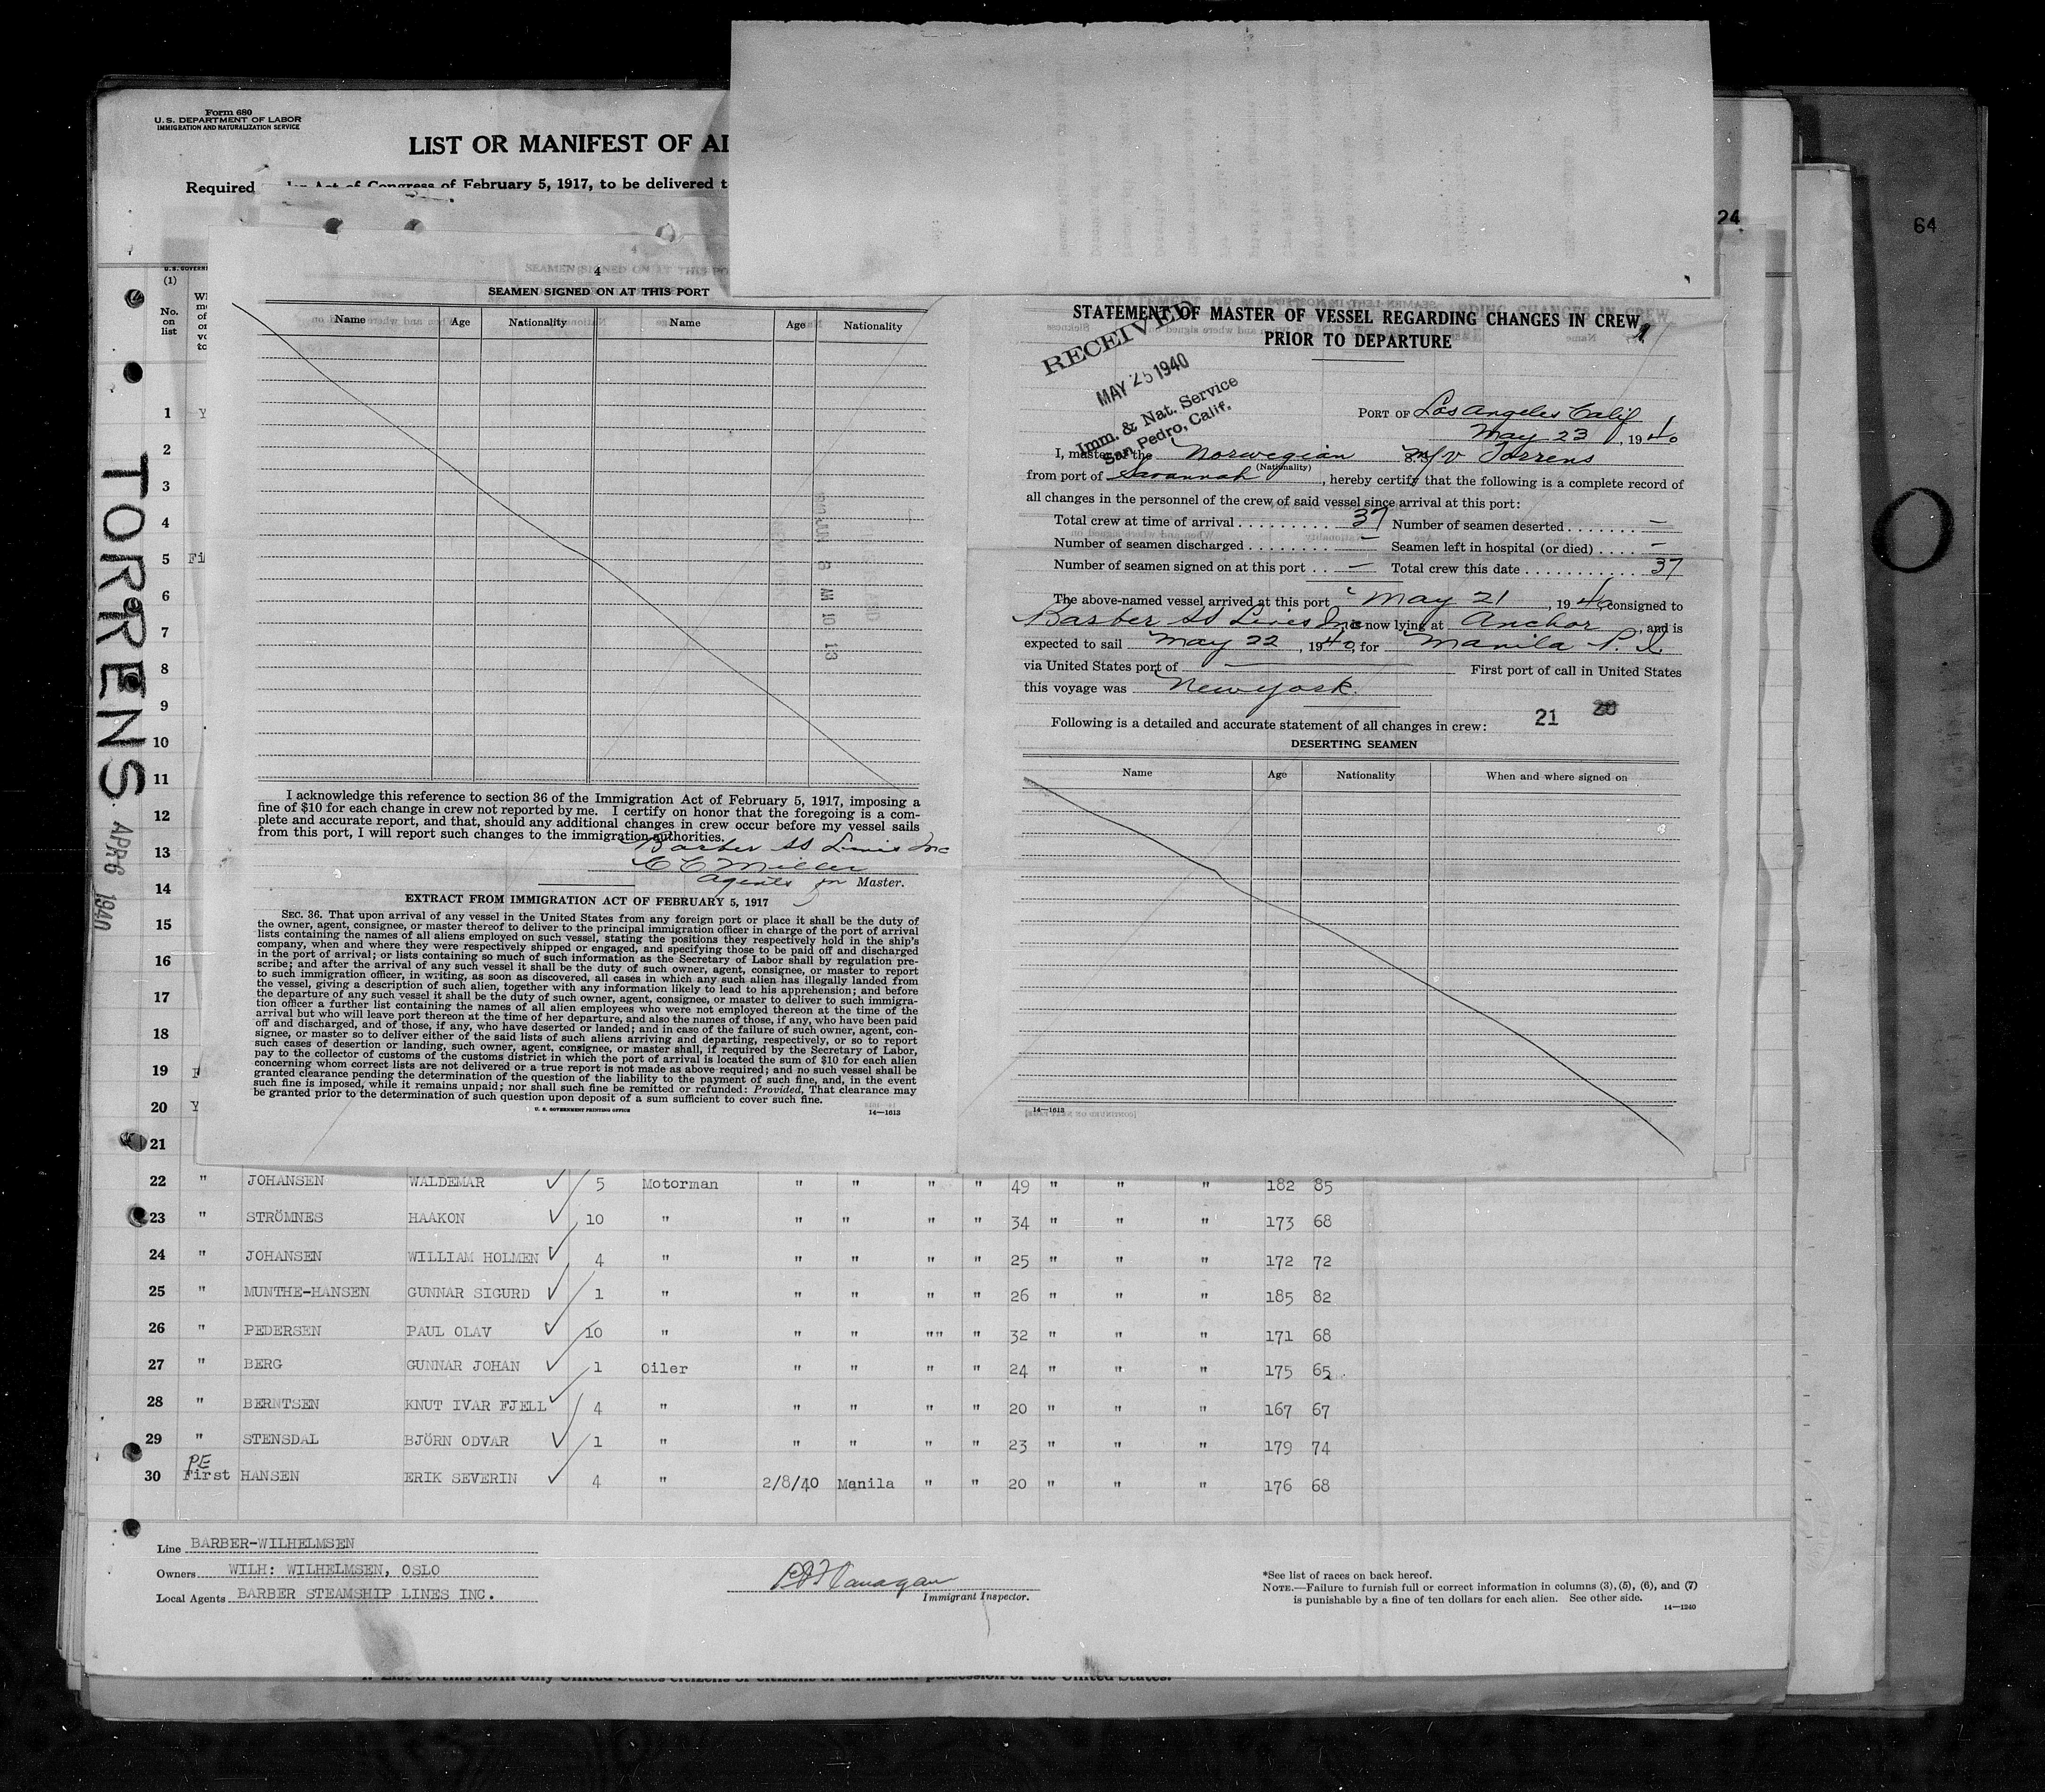 Form 680
U.S. DEPARTMENT OF LABOR
IMMIGRATION AND NATURALIZATION SERVICE
LIST OR MANIFEST OF AL
Required
Act of Congress of February 5, 1917, to be delivered t
24
64
U.S. GOVERN
(1)
No. on list
1 Y
2
3
4
5 Fi
6
7
8
9
10
11
12
13
14
15
16
17
18
19
20 Y
21
TORRENS
APR 6 1940
4
SEAMEN SIGNED ON AT THIS PORT
Name Age Nationality Name Age Nationality
I acknowledge this reference to section 36 of the Immigration Act of February 5, 1917, imposing a
fine of $10 for each change in crew not reported by me. I certify on honor that the foregoing is a com-
plete and accurate report, and that, should any additional changes in crew occur before my vessel sails
from this port, I will report such changes to the immigration authorities.
Barber SS Lines Inc
C C Miller
Agents for Master.
EXTRACT FROM IMMIGRATION ACT OF FEBRUARY 5, 1917
SEC. 36. That upon arrival of any vessel in the United States from any foreign port or place it shall be the duty of
the owner, agent, consignee, or master thereof to deliver to the principal immigration officer in charge of the port of arrival
lists containing the names of all aliens employed on such vessel, stating the positions they respectively hold in the ship's
company, when and where they were respectively shipped or engaged, and specifying those to be paid off and discharged
in the port of arrival; or lists containing so much of such information as the Secretary of Labor shall by regulation pre-
scribe; and after the arrival of any such vessel it shall be the duty of such owner, agent, consignee, or master to report
to such immigration officer, in writing, as soon as discovered, all cases in which any such alien has illegally landed from
the vessel, giving a description of such alien, together with any information likely to lead to his apprehension; and before
the departure of any such vessel it shall be the duty of such owner, agent, consignee, or master to deliver to such immigra-
tion officer a further list containing the names of all alien employees who were not employed thereon at the time of the
arrival but who will leave port thereon at the time of her departure, and also the names of those, if any, who have been paid
off and discharged, and of those, if any, who have deserted or landed; and in case of the failure of such owner, agent, con-
signee, or master so to deliver either of the said lists of such aliens arriving and departing, respectively, or so to report
such cases of desertion or landing, such owner, agent, consignee, or master shall, if required by the Secretary of Labor,
pay to the collector of customs of the customs district in which the port of arrival is located the sum of $10 for each alien
concerning whom correct lists are not delivered or a true report is not made as above required; and no such vessel shall be
granted clearance pending the determination of the question of the liability to the payment of such fine, and, in the event
such fine is imposed, while it remains unpaid; nor shall such fine be remitted or refunded: Provided, That clearance may
be granted prior to the determination of such question upon deposit of a sum sufficient to cover such fine.
U. S. GOVERNMENT PRINTING OFFICE 14—1613
STATEMENT OF MASTER OF VESSEL REGARDING CHANGES IN CREW
PRIOR TO DEPARTURE
RECEIVED
MAY 25 1940
Imm. & Nat. Service
San Pedro, Calif.
PORT OF Los Angeles Calif
May 23, 1940
I, master of the Norwegian M/V Torrens
(Nationality)
from port of Savannah, hereby certify that the following is a complete record of
all changes in the personnel of the crew of said vessel since arrival at this port:
Total crew at time of arrival 37 Number of seamen deserted —
Number of seamen discharged — Seamen left in hospital (or died) —
Number of seamen signed on at this port — Total crew this date 37
The above-named vessel arrived at this port May 21, 1940, consigned to
Barber SS Lines Inc now lying at Anchor, and is
expected to sail May 22, 1940, for Manila P. I.
via United States port of — First port of call in United States
this voyage was New York.
21 20
Following is a detailed and accurate statement of all changes in crew:
DESERTING SEAMEN
Name Age Nationality When and where signed on
14—1613
22 " JOHANSEN WALDEMAR 5 Motorman " " " " 49 " " " 182 85
23 " STRÖMNES HAAKON 10 " " " " " 34 " " " 173 68
24 " JOHANSEN WILLIAM HOLMEN 4 " " " " " 25 " " " 172 72
25 " MUNTHE-HANSEN GUNNAR SIGURD 1 " " " " " 26 " " " 185 82
26 " PEDERSEN PAUL OLAV 10 " " " "" " 32 " " " 171 68
27 " BERG GUNNAR JOHAN 1 Oiler " " " " 24 " " " 175 65
28 " BERNTSEN KNUT IVAR FJELL 4 " " " " " 20 " " " 167 67
29 " STENSDAL BJÖRN ODVAR 1 " " " " " 23 " " " 179 74
PE
30 First HANSEN ERIK SEVERIN 4 " 2/8/40 Manila " " 20 " " " 176 68
Line BARBER-WILHELMSEN
Owners WILH: WILHELMSEN, OSLO
Local Agents BARBER STEAMSHIP LINES INC.
Immigrant Inspector.
*See list of races on back hereof.
NOTE.—Failure to furnish full or correct information in columns (3), (5), (6), and (7)
is punishable by a fine of ten dollars for each alien. See other side.
14—1240